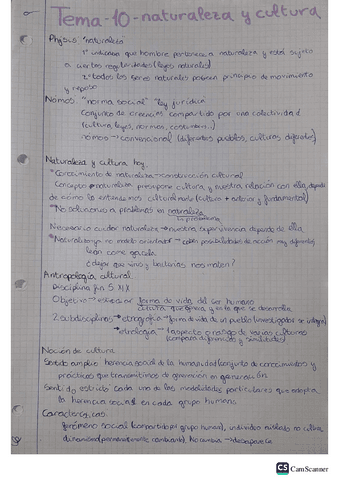 Tema-10-naturaleza y cultura
Physis "naturaleza"
1º indicaba que hombre pertenece a naturaleza y está sujeto
a ciertas regularidades (leyes naturales)
2º todos los seres naturales poseen principio de movimiento
y reposo
Nomos: "norma social" "ley jurídica"
Conjunto de creencias compartido por una colectividad
(cultura, leyes, normas, costumbre...)
nomos → convencional (diferentes pueblos, culturas diferentes)
Naturaleza y cultura hoy
*Conocimiento de naturaleza → construcción cultural
Concepto naturaleza presupone cultura, y nuestra relación con ella, depende
de como la entendemos culturalmente (cultura + anterior y fundamental)
*No soluciones a problemas en naturaleza
Necesario cuidar naturaleza → nuestra supervivencia depende de ella
*Naturaleza no modelo orientador → posibilidades de acción muy diferentes
león come gacela
¿dejar que virus y bacterias nos maten?
Antropología cultural
Disciplina fin S XIX
Objetivo → estudiar forma de vida del ser humano
cultura que genera, y en la que se desarrolla
2 subdisciplinas → etnografía → forma de vida de un pueblo (investigador se integra)
→ etnología → aspecto o rasgo de varias culturas
(compara diferencias y similitudes)
Noción de cultura
Sentido amplio herencia social de la humanidad (conjunto de conocimientos y
prácticas que transmitimos de generación en generación
Sentido estricto cada una de las modalidades particulares que adopta
la herencia social en cada grupo humano
Características:
fenómeno social (compartida por grupo humano), individuo aislado no cultura
dinamismo (permanentemente cambiante). No cambia → desaparece
CS CamScanner